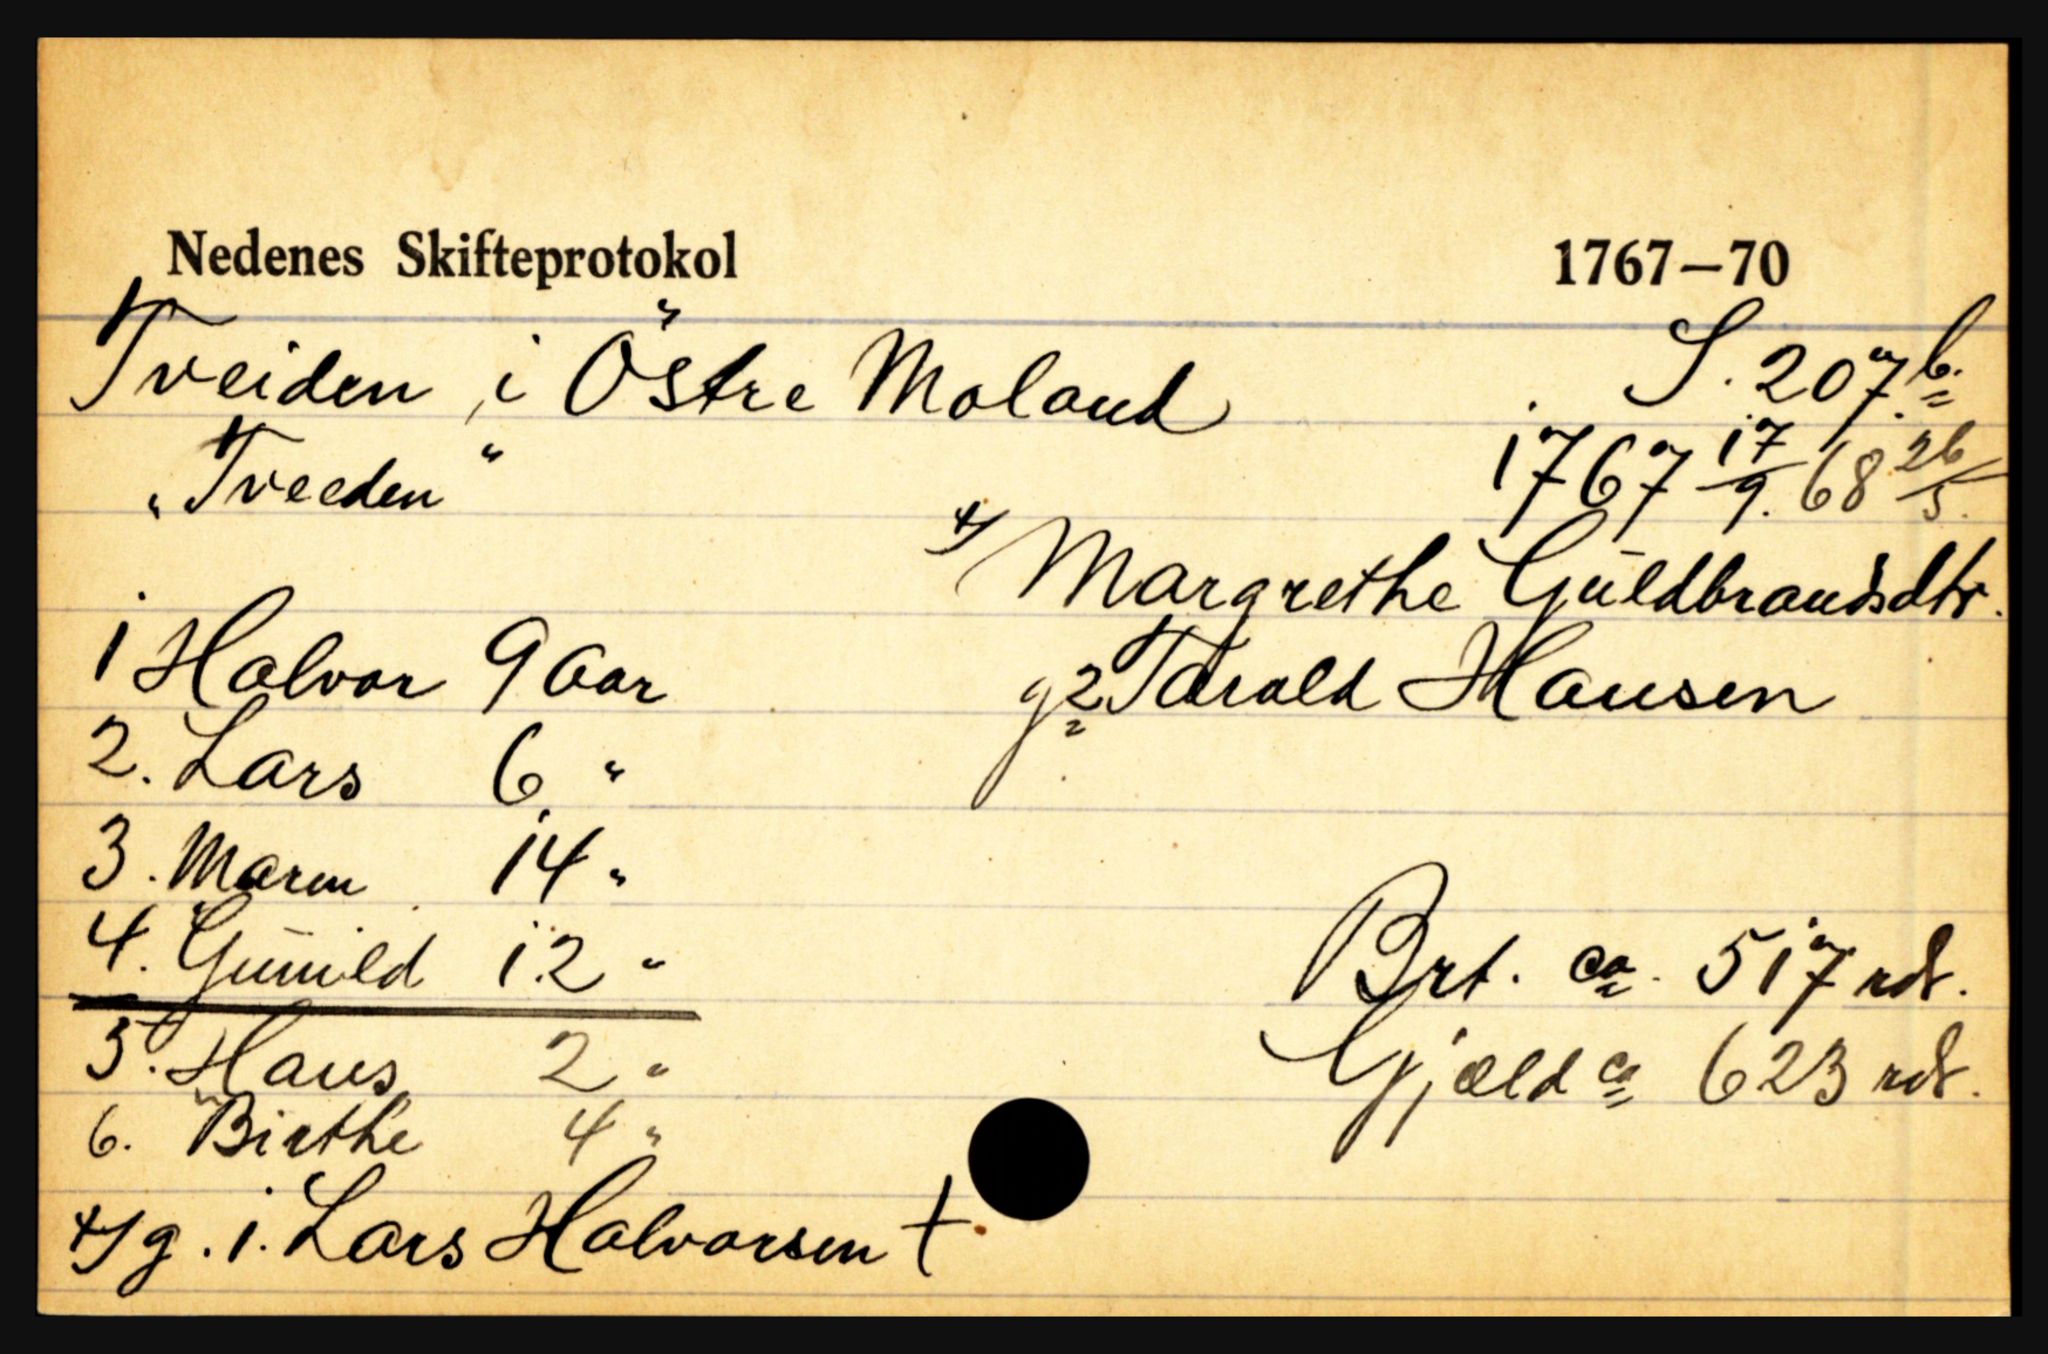 Nedenes Skifteprotokol 1767—70
Tveiden i Östre Moland S. 207 b.
"Tveeden" 1767 17/9. 68 26/5.
+/ Margrethe Guldbrandsdtr.
1 Halvor 9 aar g 2 Tarald Hansen
2. Lars 6 "
3. Maren 14 "
4. Gunild 12 " Brt. ca. 517 rdr.
5. Hans 2 " Gjæld ca 623 rdr.
6. Birthe 4 "
+/ g. 1. Lars Halvorsen †